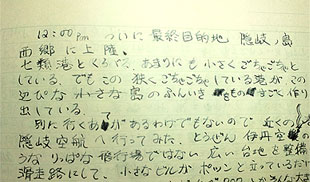 12:00pm ついに最終目的地 隠岐ノ島
西郷に上陸。
七類港とくらべる、あまりにも小さくごちゃごちゃと
している、でもこの狭くごちゃごちゃしている港がこの
辺ぴな小さな島のふんいきをものすごく作り
出している。
別に行くあてがあるわけでもないので近くの
隠岐空港へ行ってみた、とうぜん伊丹空港のよ
うなりっぱな飛行場ではない広い台地を整備
滑走路にして、小さなビルがポツンと立っているだけ